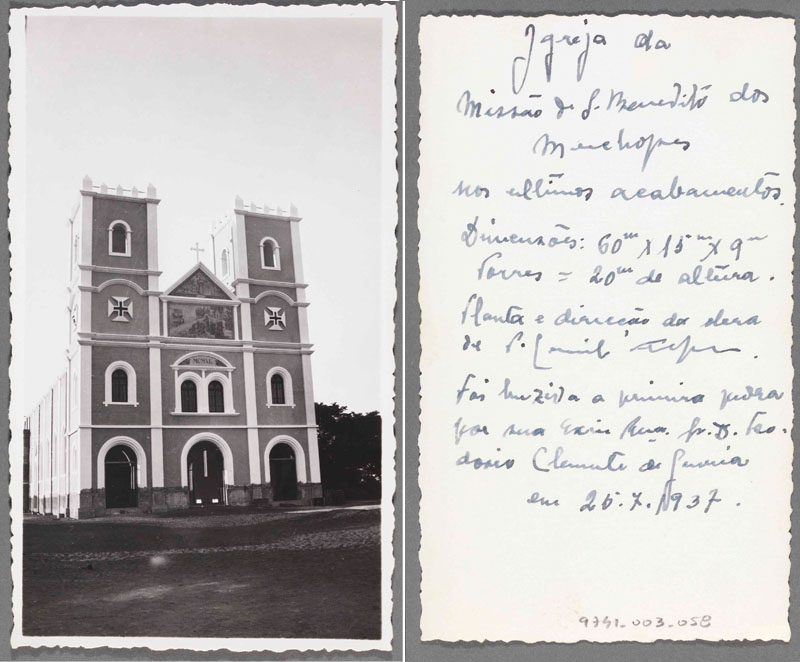 MCMXL
Igreja da
Missão de S. Benedito dos
Muchopes
nos ultimos acabamentos.
Dimensões: 60m x 15m x 9m
Torres = 20m de altura.
Planta e direcção da obra
de P.
Foi benzida a primeira pedra
por sua Excia Rma. Sr. D. Teo-
dosio Clemente de Gouveia
em 25.7.1937.
9791-003-058